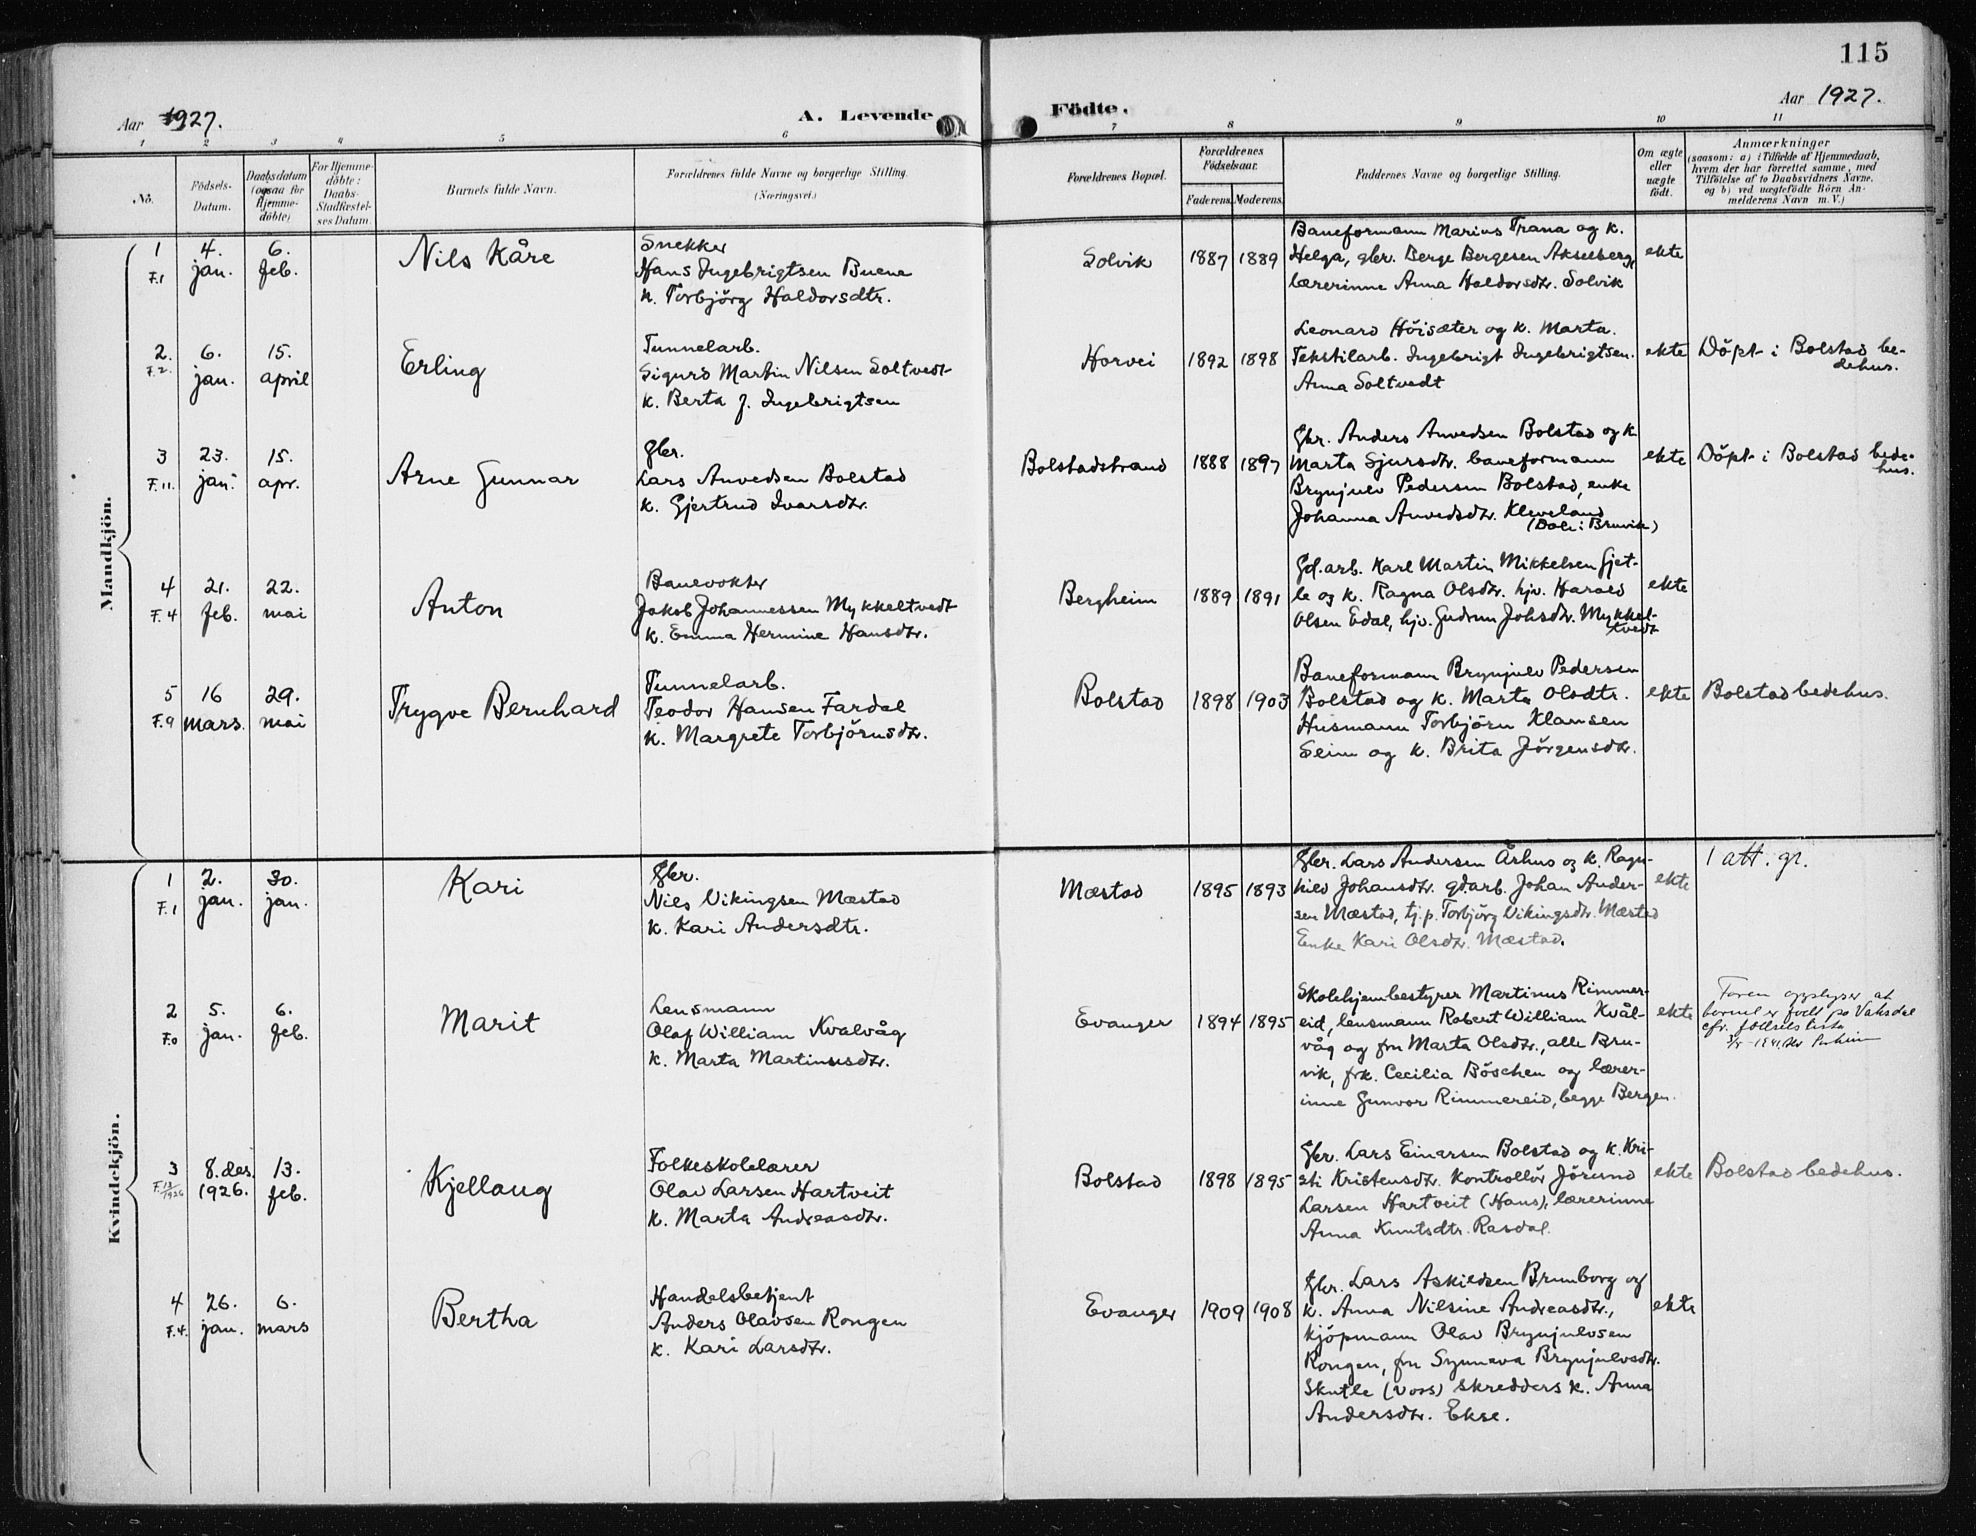 115
Aar 1927.
A. Levende Födte.
Aar 1927.
1 2 3 4 5 6 7 8 9 10 11
No.
Födsels-
Datum.
Daabsdatum
(ogsaa for
Hjemme-
döbte)
For Hjemme-
döbte:
Daabs-
Stadfæstel-
ses Datum.
Barnets fulde Navn.
Forældrenes fulde Navne og borgerlige Stilling.
(Næringsvei.)
Forældrenes Bopæl.
Forældrenes
Födselsaar.
Faderens. Moderens.
Faddernes Navne og borgerlige Stilling.
Om ægte
eller
uægte
födt.
Anmærkninger
(saasom: a) i Tilfælde af Hjemmedaab,
hvem der har forrettet samme, med
Tilföielse af to Daabsvidners Navne.
og b) ved uægtefödte Börn An-
melderens Navn m. V.)
Mandkjön.
1
F.1
4.
jan.
6.
feb.
Nils Kåre
Snekker
Hans Ingebrigtsen Buene
k. Torbjörg Haldorsdtr.
Solvik
1887 1889
Baneformann Marius Trana og k.
Helga, gbr. Berge Bergesen Akselberg,
lærerinne Anna Haldorsdtr. Solvik
ekte
2.
F.2.
6.
jan.
15.
april
Erling
Tunnelarb.
Sigurd Martin Nilsen Soltvedt
k. Berta J. Ingebrigtsen
Horvei
1892 1898
Leonard Höisæter og k. Marta.
Tekstilarb. Ingebrigt Ingebrigtsen.
Anna Soltvedt
ekte
Döpt i Bolstad be-
dehus.
3
F.11.
23.
jan.
15.
apr.
Arne Gunnar
Gbr.
Lars Anvedsen Bolstad
k. Gjertrud Ivarsdtr.
Bolstadstrand
1888 1897
Gbr. Anders Anvedsen Bolstad og k.
Marta Sjursdtr. baneformann
Brynjulv Pedersen Bolstad, enke
Johanna Anvedsdtr. Kleveland
(Dale i Bruvik)
ekte
Döpt i Bolstad bede-
hus.
4
F.4
21.
feb.
22.
mai
Anton
Banevokter
Jakob Johannessen Mykkeltvedt
k. Emma Hermine Hansdtr.
Bergheim
1889 1891
Gd.arb. Karl Martin Mikkelsen Gjet-
le og k. Ragna Olsdtr. hjv. Harald
Olsen Edal, hjv. Gudrun Johsdtr. Mykkel-
tvedt
ekte
5
F.9
16
mars.
29.
mai
Trygve Bernhard
Tunnelarb.
Teodor Hansen Fardal
k. Margrete Torbjörnsdtr.
Bolstad
1898 1903
Baneformann Brynjulv Pedersen
Bolstad og k. Marta Olsdtr.
Husmann Torbjörn Klamsen
Seim og k. Brita Jörgensdtr.
ekte
Bolstad bedehus.
Kvindekjön.
1
F.1
2.
jan.
30.
jan.
Kari
Gbr.
Nils Vikingsen Mæstad
k. Kari Andersdtr.
Mæstad
1895 1893
Gbr. Lars Andersen Århus og k. Ragn-
hild Johansdtr. gd.arb. Johan Ander-
sen Mæstad, tj.p. Torbjörg Vikingsdtr. Mæstad
Enke Kari Olsdtr. Mæstad.
ekte
1 att. gr.
2
F.0
5.
jan.
6.
feb.
Marit
Lensmann
Olaf William Kvalvåg
k. Marta Martinusdtr.
Evanger
1894 1895
Skolehjembestyrer Martinus Rimmer-
eid, lensmann Robert William Kvål-
våg og fru Marta Olsdtr., alle Bru-
vik, frk. Cecilia Böschen og lærer-
inne Gunvor Rimmereid, begge Bergen.
ekte
Faren opplyser at
barnet er født på Vaksdal
cfr. fødselslista
3
F.13/1926
8. des.
1926.
13.
feb.
Kjellaug
Folkeskolelærer
Olav Larsen Hartveit
k. Marta Andreasdtr.
Bolstad
1898 1895
Gbr. Lars Einarsen Bolstad og k. Kri-
sti Kristensdtr. Kontrollör Jörund
Larsen Hartveit (Hans), lærerinne
Anna Knutsdtr. Rasdal.
ekte
Bolstad bedehus.
4
F.4.
26.
jan.
6.
mars
Bertha
Handelsbetjent
Anders Olavsen Rongen
k. Kari Larsdtr.
Evanger
1909 1908
Gbr. Lars Askildsen Brunborg og
k. Anna Nilsine Andreasdtr.,
kjöpmann Olav Brynjulvsen
Rongen, fru Synneva Brynjulvsdtr.
Skutle (Voss) skredders k. Anna
Andersdtr. Ekse.
ekte